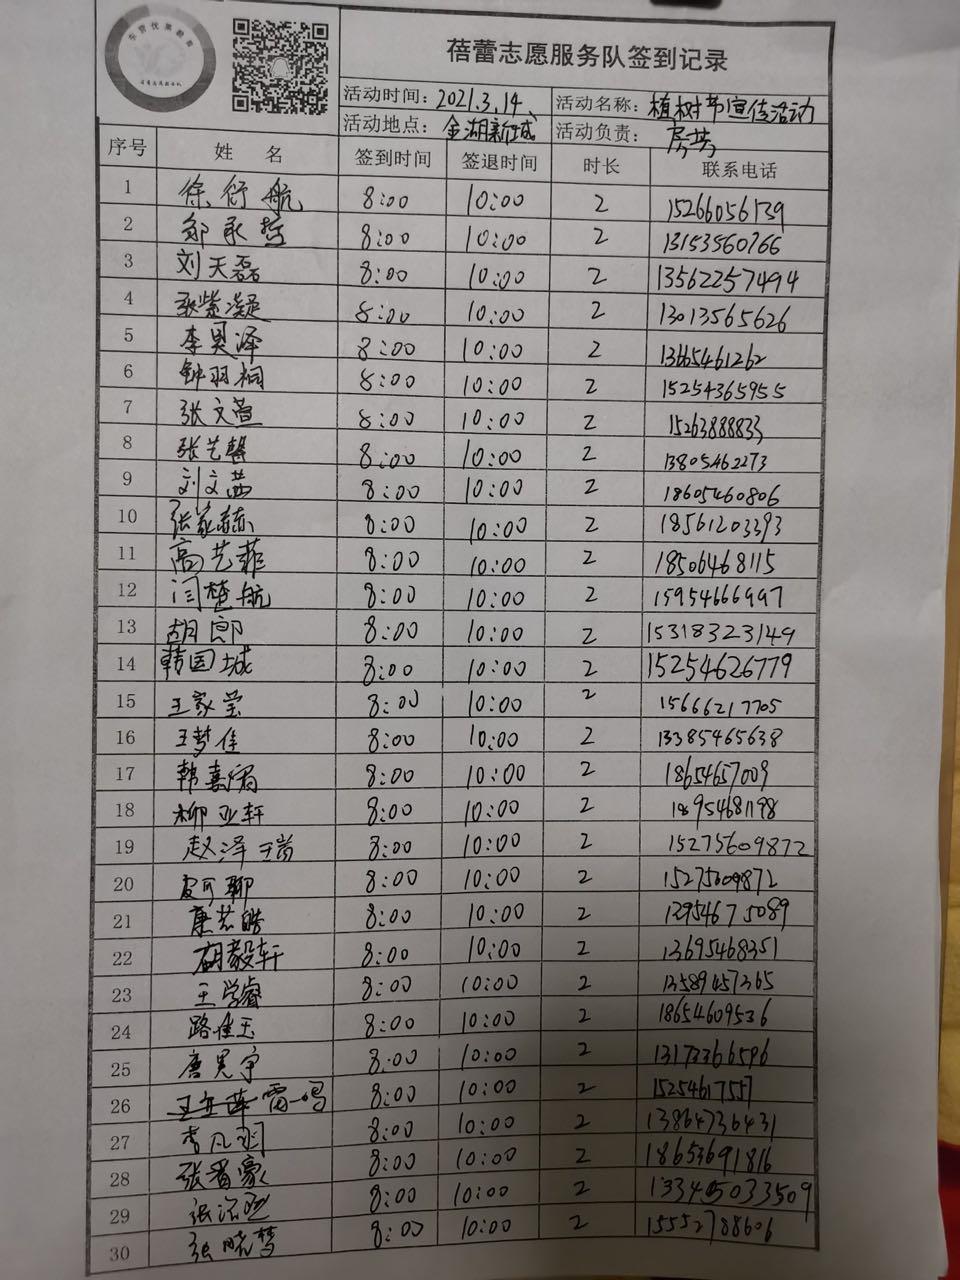 蓓蕾志愿服务队签到记录
活动时间：2021.3.14、 活动名称：植树节宣传活动
活动地点：金湖新城 活动负责：房芳
序号 姓 名 签到时间 签退时间 时长 联系电话
1 徐衍航 8:00 10:00 2 15266056139
2 郑承哲 8:00 10:00 2 13153560766
3 刘天磊 8:00 10:00 2 13562257494
4 张紫凝 8:00 10:00 2 13013565626
5 李昊泽 8:00 10:00 2 13665461262
6 钟羽桐 8:00 10:00 2 15254365955
7 张文萱 8:00 10:00 2 15263888833
8 张艺馨 8:00 10:00 2 13805462273
9 刘文茜 8:00 10:00 2 18605460806
10 张家赫 8:00 10:00 2 18561203393
11 高艺菲 8:00 10:00 2 18506468115
12 闫楚航 8:00 10:00 2 15954666997
13 胡郎 8:00 10:00 2 15318323149
14 韩国城 8:00 10:00 2 15254626779
15 王家莹 8:00 10:00 2 15666217705
16 王梦佳 8:00 10:00 2 13385465638
17 韩嘉 8:00 10:00 2 18654657009
18 柳亚轩 8:00 10:00 2 18954681198
19 赵泽瑞 8:00 10:00 2 15275609872
20 8:00 10:00 2 15275609872
21 康芸皓 8:00 10:00 2
22 胡毅轩 8:00 10:00 2 13695468351
23 王学睿 8:00 10:00 2 13589457365
24 路佳玉 8:00 10:00 2 18654609536
25 唐昊宇 8:00 10:00 2 13173366596
26 雷一鸣 8:00 10:00 2 15254617557
27 李凡羽 8:00 10:00 2 13864736431
28 张晋豪 8:00 10:00 2 18653691816
29 张 8:00 10:00 2
30 张晓梦 8:00 10:00 2 15552788606